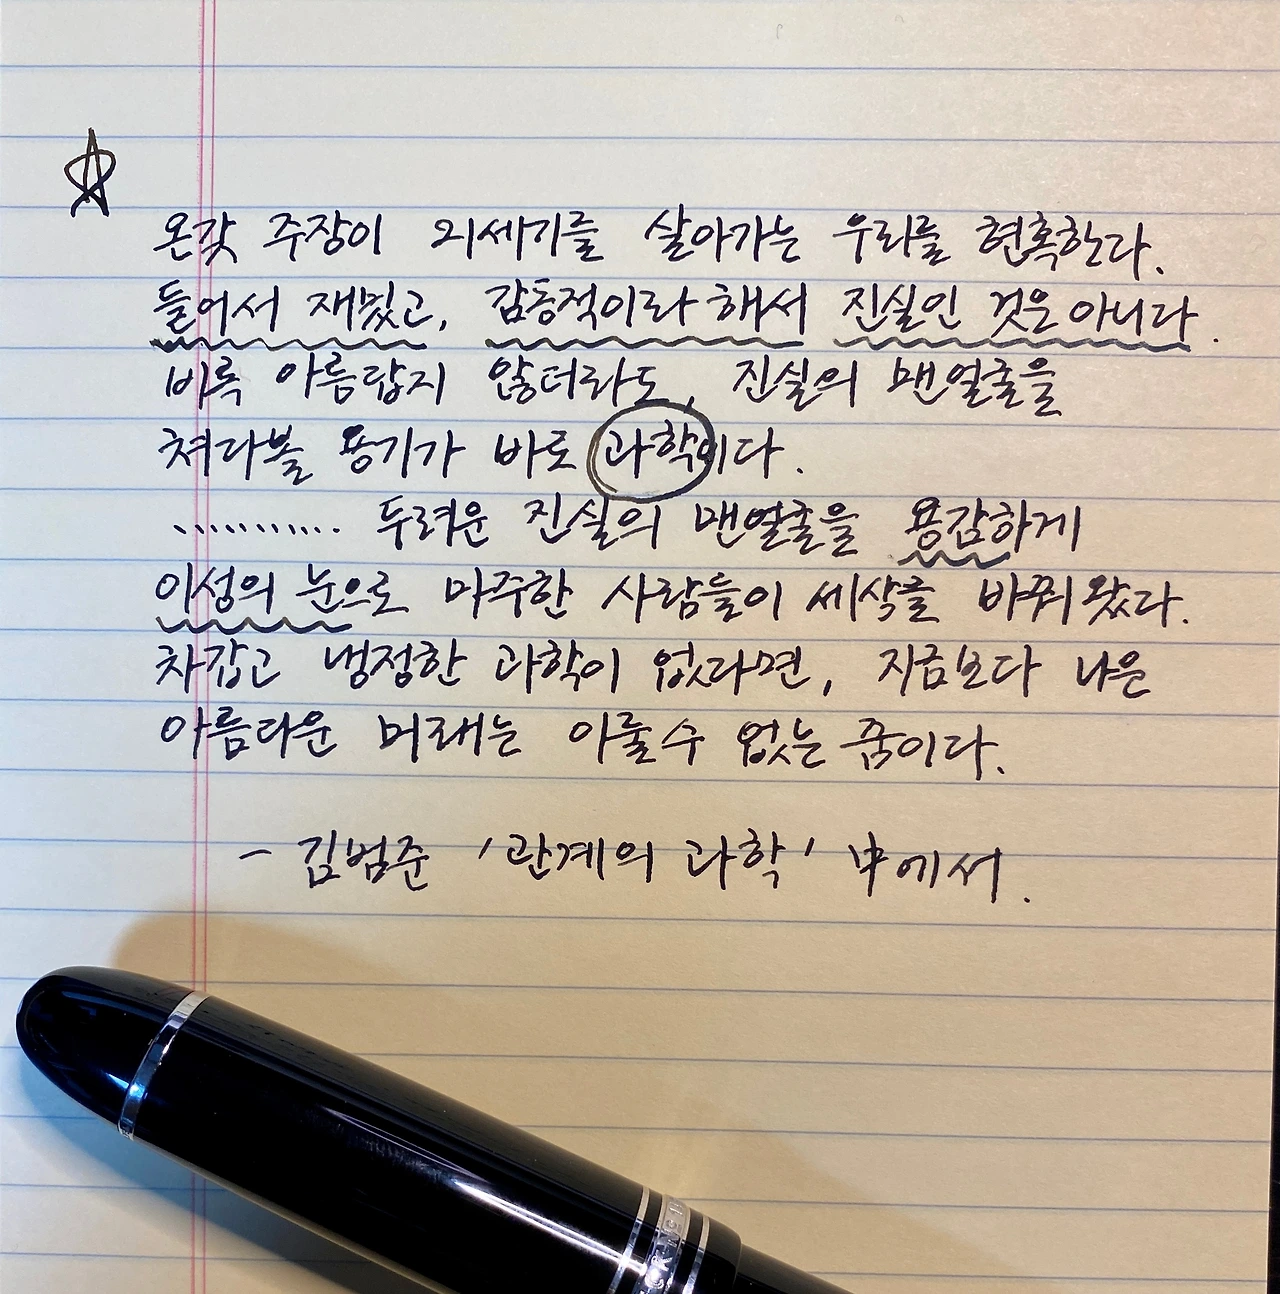 온갖 주장이 21세기를 살아가는 우리를 현혹한다.
들어서 재밌고, 감동적이라 해서 진실인 것은 아니다.
비록 아름답지 않더라도, 진실의 맨얼굴을
쳐다볼 용기가 바로 과학이다.
........... 두려운 진실의 맨얼굴을 용감하게
이성의 눈으로 마주한 사람들이 세상을 바꿔왔다.
차갑고 냉정한 과학이 없다면, 지금보다 나은
아름다운 미래는 이룰수 없는 꿈이다.
- 김범준 '관계의 과학' 中에서.